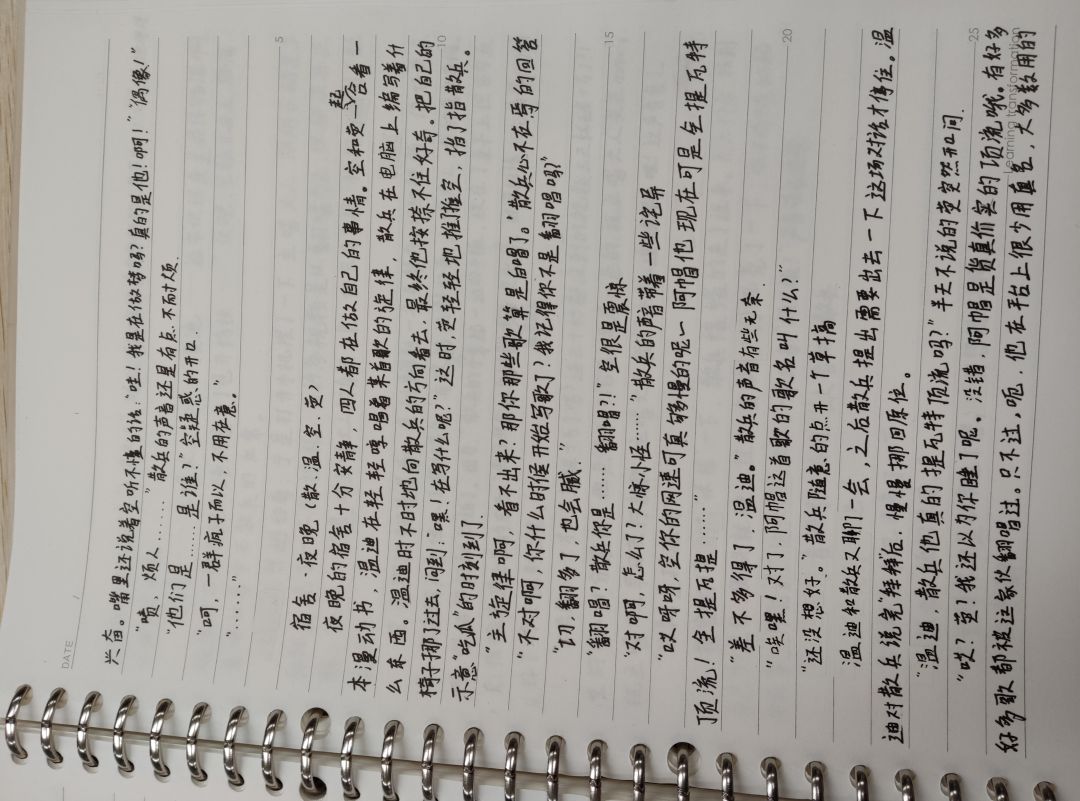 DATE
兴奋。嘴里还说着空听不懂的话：“哇！我是在做梦吗？真的是他！啊！”“偶像！”
“啧，烦人……”散兵的声音还是有点不耐烦.
“他们是……是谁？”空疑惑的开口.
“呵，一群疯子而以，不用在意。”
“……”
5
宿舍·夜晚（散.温.空.荧）
夜晚的宿舍十分安静，四人都在做自己的事情。空和荧一起合看一
本漫动书，温迪在轻轻哼唱着某首歌的旋律，散兵在电脑上编写着什
么东西。温迪时不时地向散兵的方向看去，最终他按捺不住好奇。把自己的
10
椅子挪了过去，问到：“嘿！在写什么呢？”这时，荧轻轻地推了推空，指了指散兵。
示意“吃瓜”的时刻到了.
“主旋律啊，看不出来？那你那些歌算是白唱了。”散兵心不在焉的回答
“不对啊，你什么时候开始写歌了？我记得你不是翻唱吗？”
“切，翻多了，也会腻。”
15
“翻唱？散兵你是……翻唱？！”空很是震惊
“对啊，怎么了？大惊小怪……”散兵的声音带着一些诧异
“哎呀呀，空你的网速可真够慢的呢～阿帽他现在可是全提瓦特
顶流！全提瓦提……”
“差不多得了，温迪。”散兵的声音有些无奈.
“唉嘿！对了，阿帽这首歌的歌名叫什么？”
20
“还没想好。”散兵随意的点开一个草搞
温迪和散兵又聊了一会，之后散兵提出需要出去一下这场对话才停住。温
迪对散兵说完“拜拜”后，慢慢挪回原位。
“温迪，散兵他真的提瓦特顶流吗？”半天不说的荧突然开口问.
“哎？荧！我还以为你睡了呢。没错，阿帽是货真价实的顶流哦。有好多
25
好多歌都被这家伙翻唱过。只不过，呃，他在平台上很少用真名，大多数用的
Learning transformation